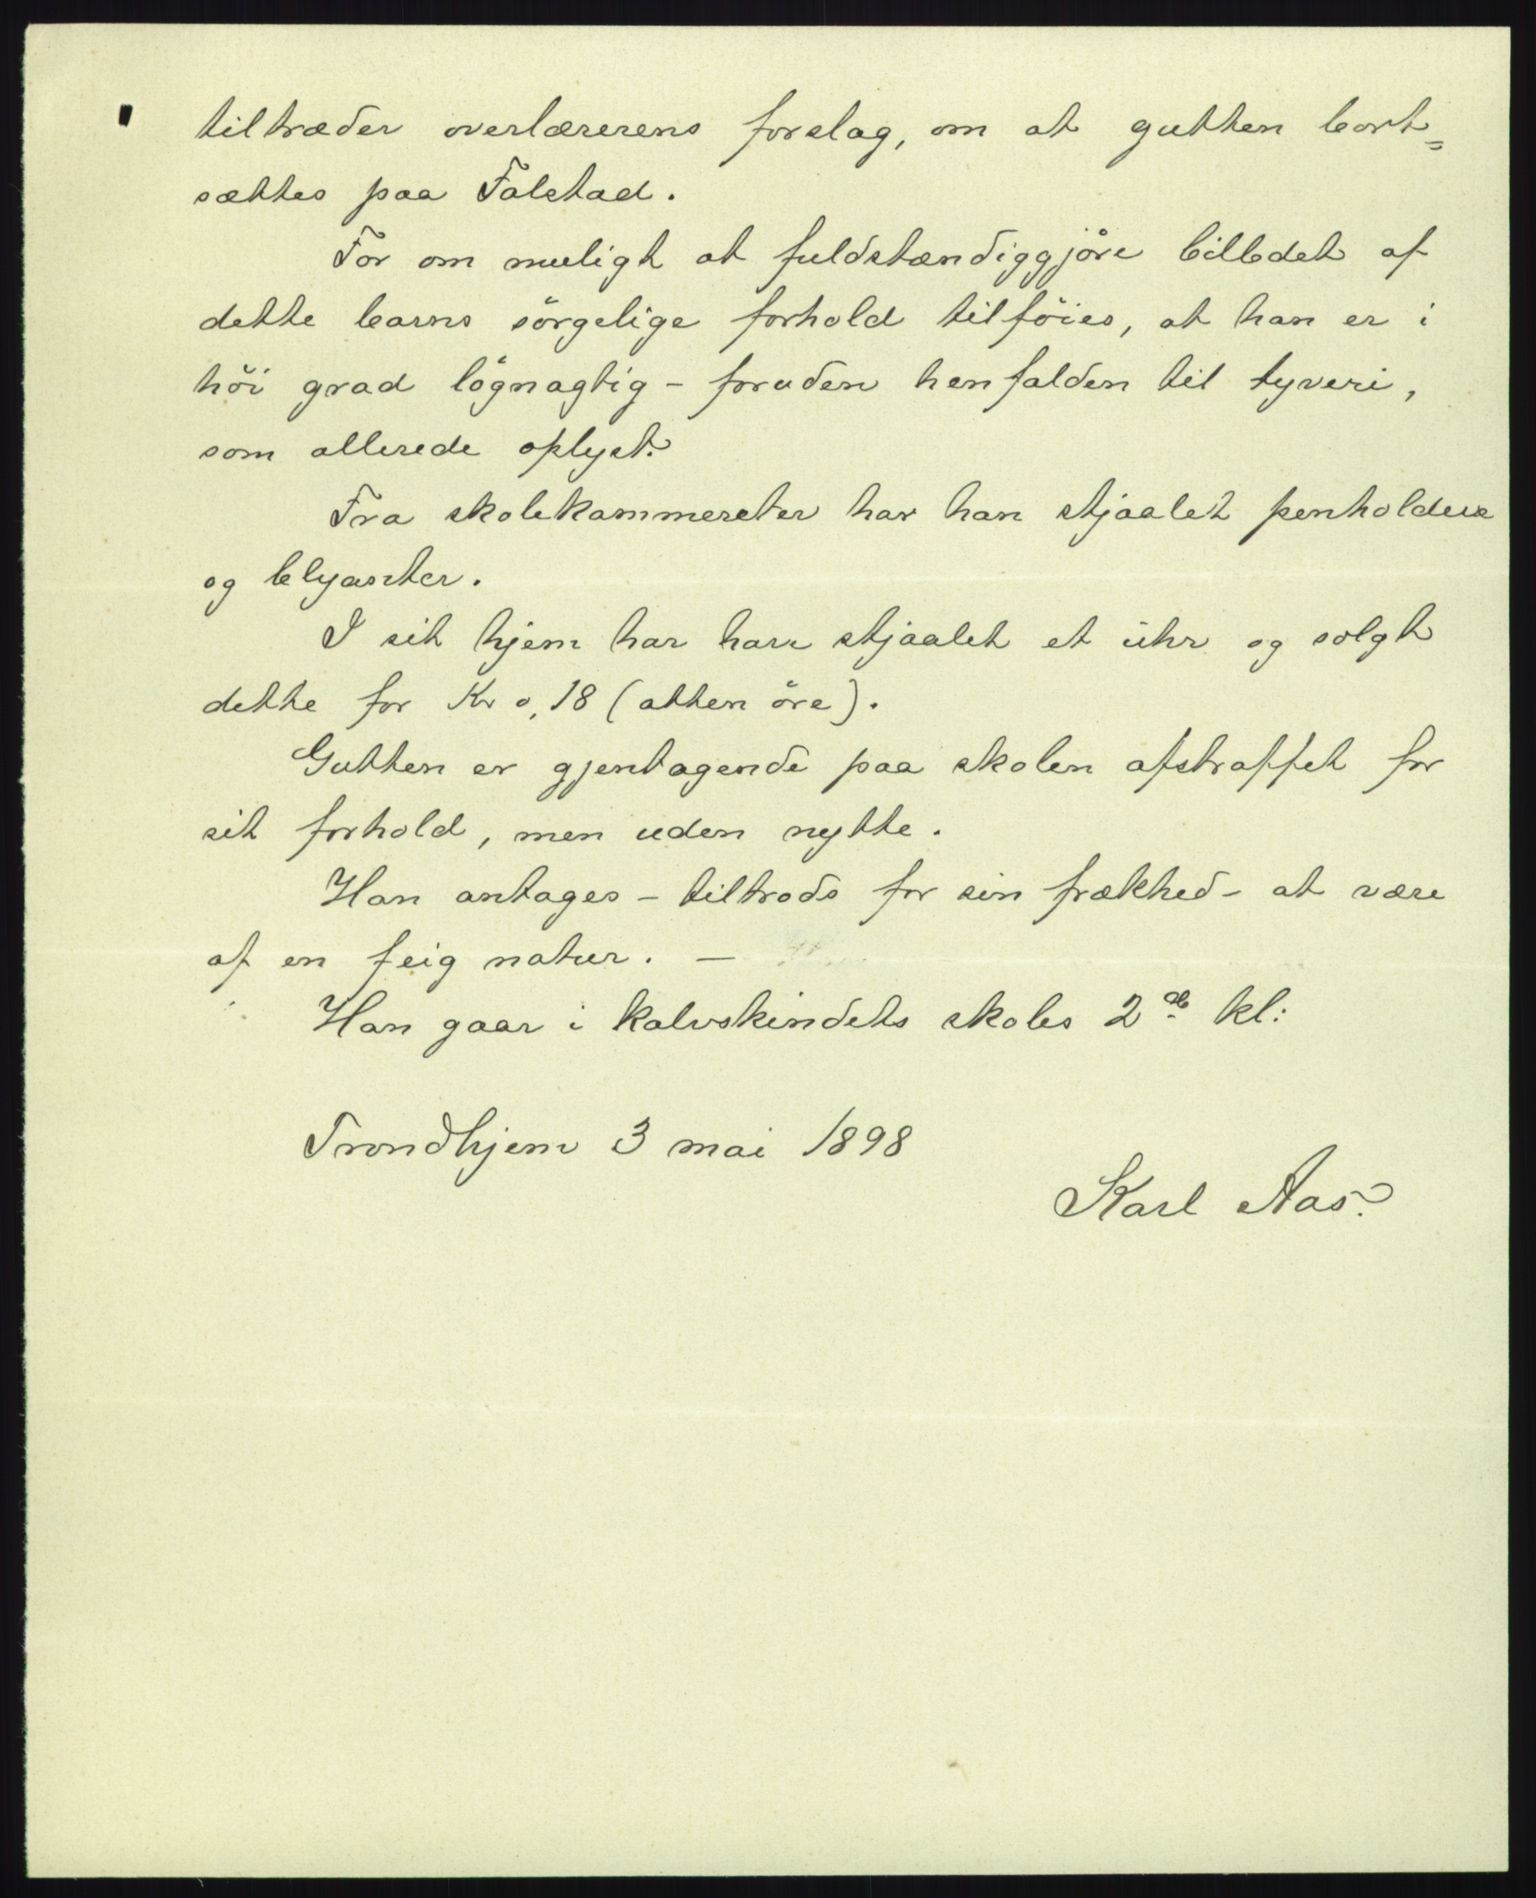 tiltræder overlærerens forslag, om at gutten bort=
sættes paa Falstad.
For om muligt at fuldstændiggjöre billedet af
dette barns sörgelige forhold tilföies, at han er i
höi grad lögnagtig - foruden henfalden til tyveri,
som allerede oplyst.
Fra skolekammerater har han stjaalet penholdere
og blyanter.
I sit hjem har han stjaalet et uhr og solgt
dette for Kr 0,18 (atten öre).
Gutten er gjentagende paa skolen afstraffet for
sit forhold, men uden nytte.
Han antages - tiltrods for sin frækhed - at være
af en feig natur. —
Han gaar i Kalvskindets skoles 2 kl:
Trondhjem 3 mai 1898
Karl Aas.